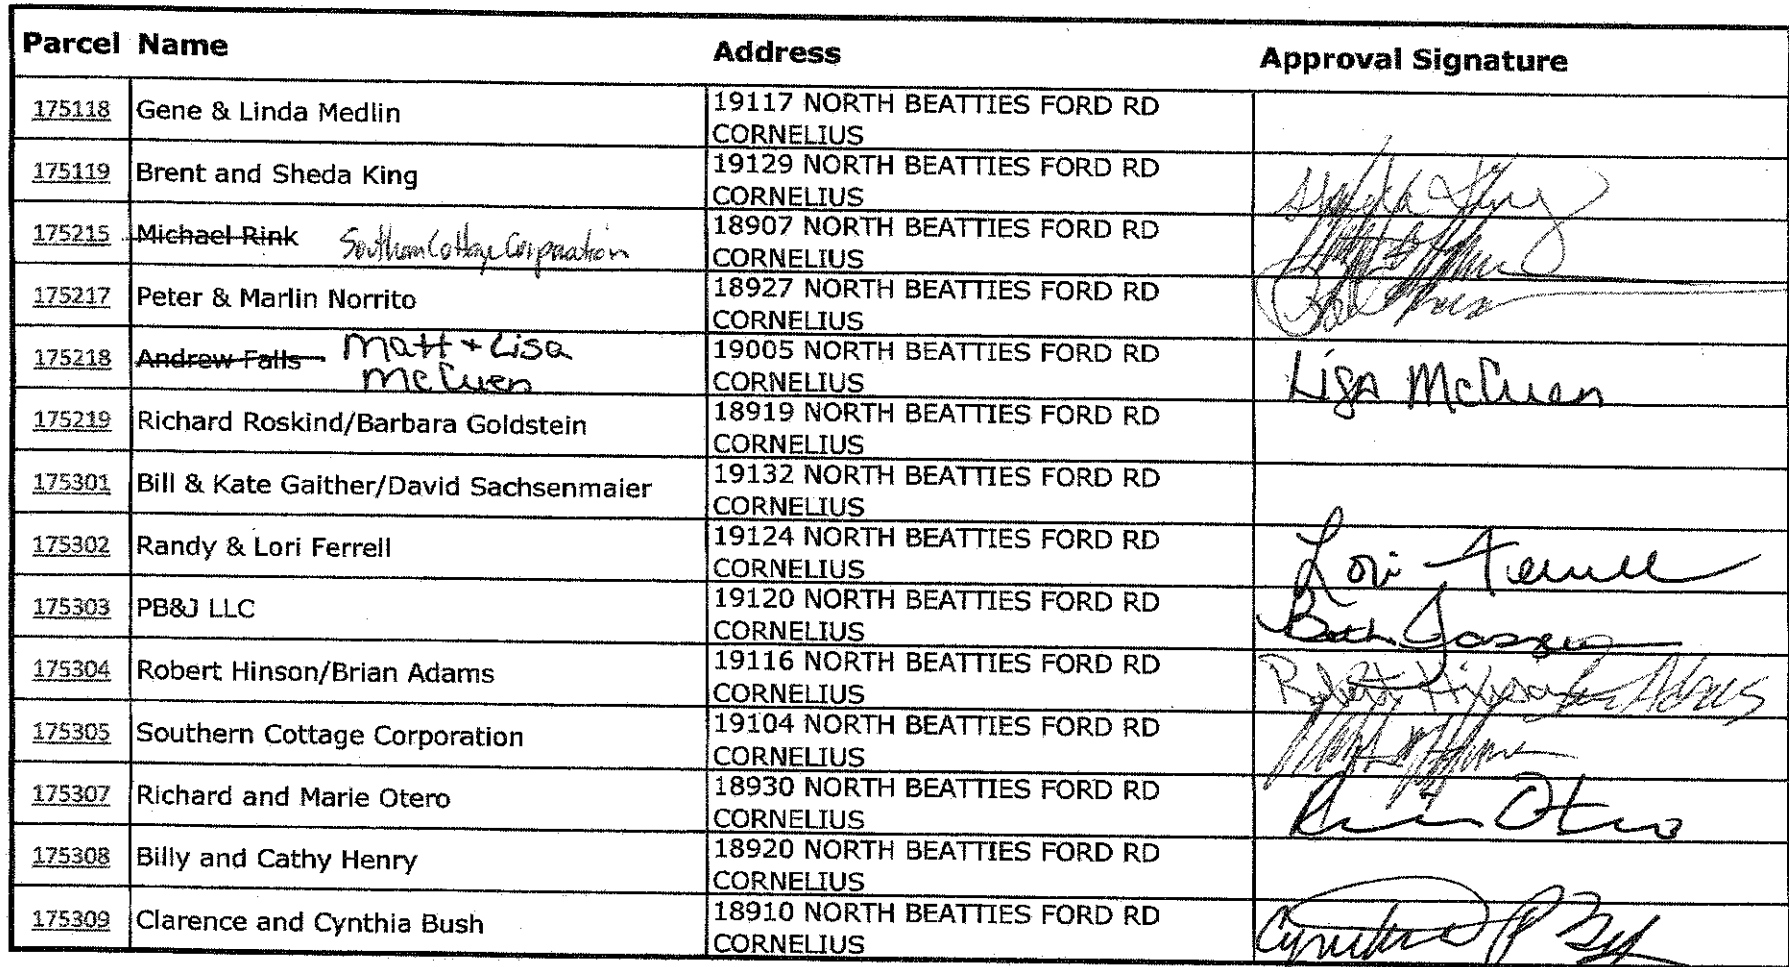 Parcel Name Address Approval Signature
175118 Gene & Linda Medlin 19117 NORTH BEATTIES FORD RD
CORNELIUS
175119 Brent and Sheda King 19129 NORTH BEATTIES FORD RD
CORNELIUS Sheda King
175215 Michael Rink Southern Cottage Corporation 18907 NORTH BEATTIES FORD RD
CORNELIUS
175217 Peter & Marlin Norrito 18927 NORTH BEATTIES FORD RD
CORNELIUS
175218 Andrew Falls Matt + Lisa 19005 NORTH BEATTIES FORD RD
McCuen CORNELIUS Lisa McCuen
175219 Richard Roskind/Barbara Goldstein 18919 NORTH BEATTIES FORD RD
CORNELIUS
175301 Bill & Kate Gaither/David Sachsenmaier 19132 NORTH BEATTIES FORD RD
CORNELIUS
175302 Randy & Lori Ferrell 19124 NORTH BEATTIES FORD RD
CORNELIUS Lori Ferrell
175303 PB&J LLC 19120 NORTH BEATTIES FORD RD
CORNELIUS
175304 Robert Hinson/Brian Adams 19116 NORTH BEATTIES FORD RD
CORNELIUS Robert Hinson Adams
175305 Southern Cottage Corporation 19104 NORTH BEATTIES FORD RD
CORNELIUS
175307 Richard and Marie Otero 18930 NORTH BEATTIES FORD RD
CORNELIUS Otero
175308 Billy and Cathy Henry 18920 NORTH BEATTIES FORD RD
CORNELIUS
175309 Clarence and Cynthia Bush 18910 NORTH BEATTIES FORD RD
CORNELIUS Cynthia P Bush